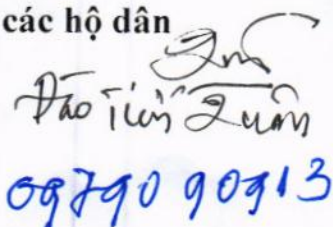 các hộ dân
Đào Tiến Quân
0979090913